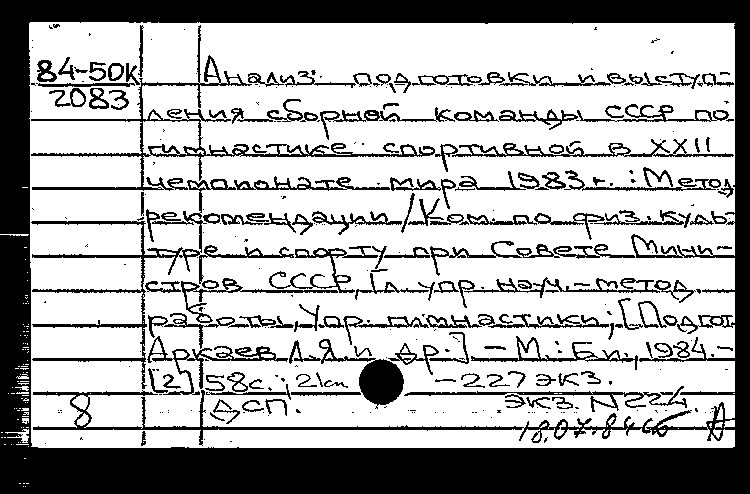 84-50К
2083
Анализ подготовки и выступ-
ления сборной команды СССР по
гимнастике спортивной в XXII
чемпионате мира 1983 г. : Метод.
рекомендации / Ком. по физ. куль-
туре и спорту при Совете Мини-
стров СССР, Гл. упр. науч.-метод.
работы, Упр. гимнастики; [Подгот.
Аркаев Л.Я. и др.]. - М. : Б.и., 1984. -
[2], 58с.; 21см - 227 экз.
8 ДСП. экз. N 224.
18.07.84